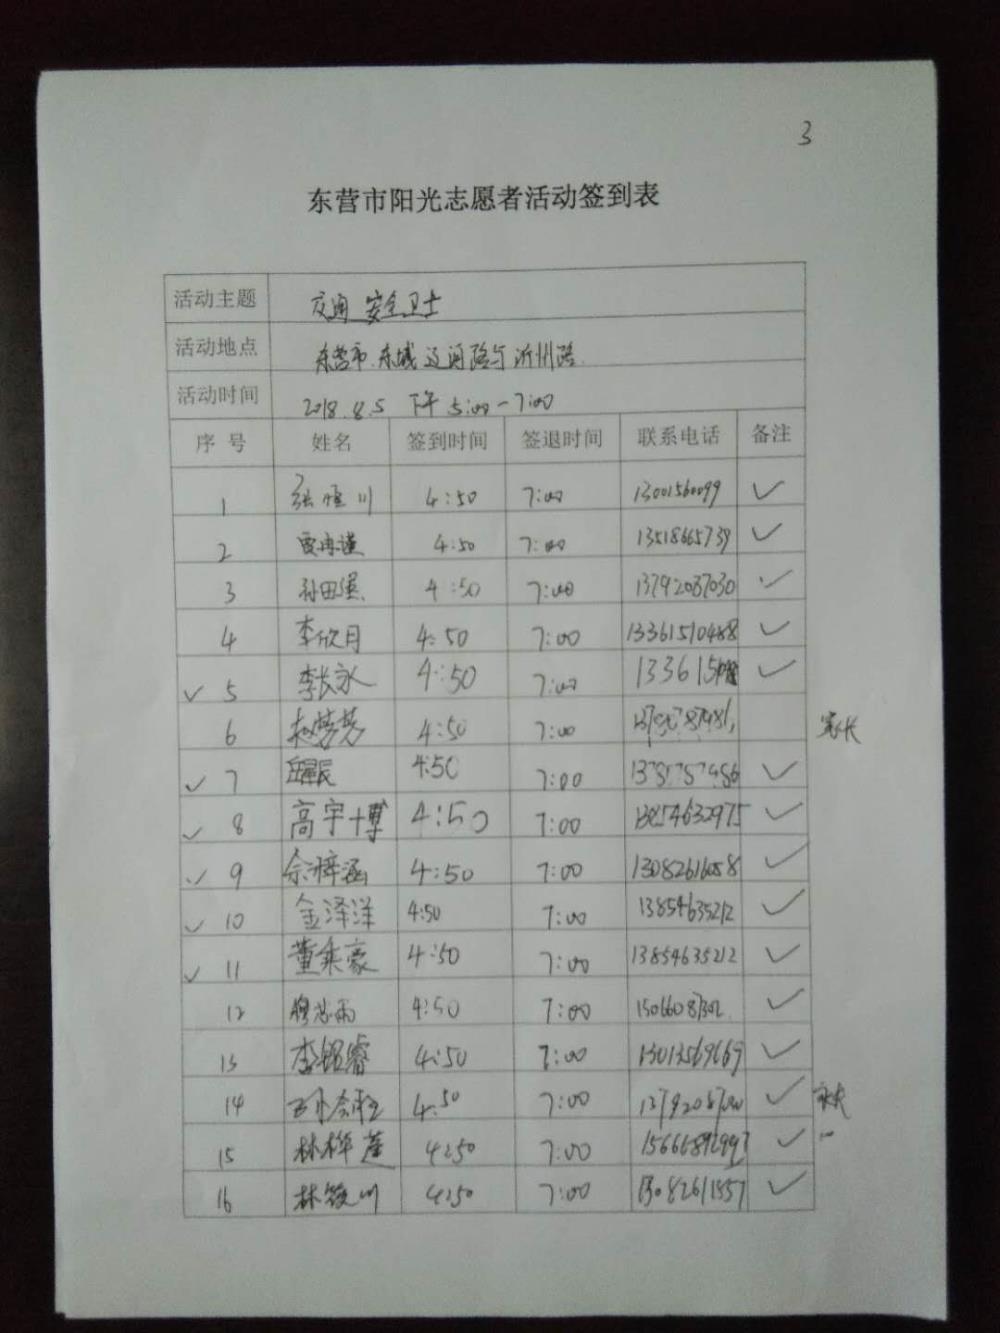 3
东营市阳光志愿者活动签到表
活动主题 交通安全卫士
活动地点 东营市.东城 辽河路与沂州路.
活动时间 2018.8.5 下午 5:00-7:00
序号 姓名 签到时间 签退时间 联系电话 备注
1 张恒川 4:50 7:00 13001560099 ✓
2 4:50 7:00 13518665739 ✓
3 4:50 7:00 13792037030 ✓
4 李欣月 4:50 7:00 13361510488 ✓
✓ 5 李长永 4:50 7:00 ✓
6 赵芳芳 4:50 7:00 家长
✓ 7 4:50 7:00 ✓
✓ 8 高宇博 4:50 7:00 13854632975 ✓
✓ 9 4:50 7:00 13082616058 ✓
✓ 10 金泽洋 4:50 7:00 13854635212 ✓
✓ 11 董秉豪 4:50 7:00 13854635212 ✓
12 4:50 7:00 ✓
13 李铭睿 4:50 7:00 13013569669 ✓
14 4:50 7:00 ✓ 家长
15 林桦莲 4:50 7:00 ✓
16 4:50 7:00 13082611557 ✓